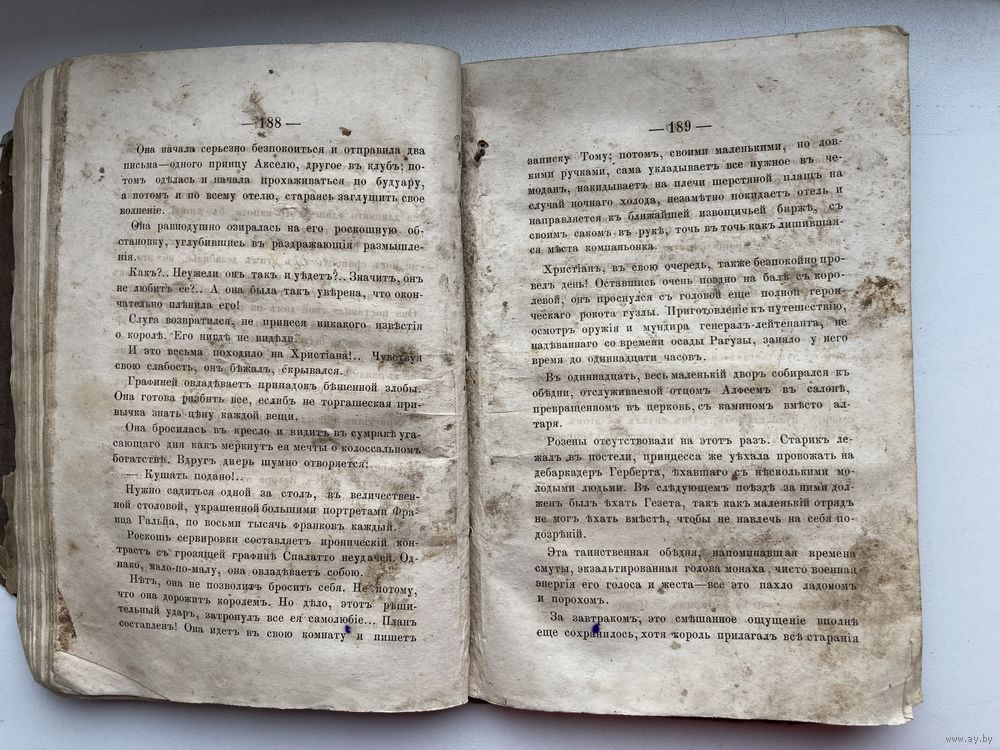 — 188 —
Она начала серьезно безпокоиться и отправила два
письма—одного принцу Акселю, другое въ клубъ; по-
томъ одѣлась и начала прохаживаться по будуару,
а потомъ и по всему отелю, стараясь заглушить свое
волненіе.
Она равнодушно озиралась на его роскошную об-
становку, углубившись въ раздражающія размышле-
нія.
Какъ?.. Неужели онъ такъ и уѣдетъ?.. Значитъ, онъ
не любитъ ее?.. А она была такъ увѣрена, что окон-
чательно плѣнила его!
Слуга возвратился, не принеся никакого извѣстія
о королѣ. Его нигдѣ не видѣли.
И это весьма походило на Христіана!.. Чувствуя
свою слабость, онъ бѣжалъ, скрывался.
Графиней овладѣваетъ припадокъ бѣшенной злобы.
Она готова разбить все, еслибъ не торгашеская при-
вычка знать цѣну каждой вещи.
Она бросилась въ кресло и видитъ въ сумракѣ уга-
сающаго дня какъ меркнутъ ея мечты о колоссальномъ
богатствѣ. Вдругъ дверь шумно отворяется:
— Кушать подано!..
Нужно садиться одной за столъ, въ величествен-
ной столовой, украшенной большими портретами Фра-
нца Гальйа, по восьми тысячъ франковъ каждый.
Роскошь сервировки составляетъ ироническій кон-
трастъ съ грозящей графинѣ Спалатто неудачей. Од-
нако, мало-по-малу, она овладѣваетъ собою.
Нѣтъ, она не позволитъ бросить себя. Не потому,
что она дорожитъ королемъ. Но дѣло, этотъ рѣши-
тельный ударъ, затронулъ все ея самолюбіе... Планъ
составленъ! Она идетъ въ свою комнату и пишетъ
— 189 —
записку Тому; потомъ, своими маленькими, но лов-
кими ручками, сама укладываетъ все нужное въ че-
моданъ, накидываетъ на плечи шерстяной плащъ на
случай ночнаго холода, незамѣтно покидаетъ отель и
направляется къ ближайшей извощичьей биржѣ, съ
своимъ сакомъ въ рукѣ, точь въ точь какъ лишившая-
ся мѣста компаньонка.
Христіанъ, въ свою очередь, также безпокойно про-
велъ день! Оставшись очень поздно на балѣ съ коро-
левой, онъ проснулся съ головой еще полной герои-
ческаго рокота гузлы. Приготовленіе къ путешествію,
осмотръ оружія и мундира генералъ-лейтенанта, не
надѣваннаго со времени осады Рагузы, заняло у него
время до одиннадцати часовъ.
Въ одиннадцать, весь маленькій дворъ собирался къ
обѣдни, отслуживаемой отцомъ Алфеемъ въ салонѣ,
превращенномъ въ церковь, съ каминомъ вмѣсто ал-
таря.
Розены отсутствовали на этотъ разъ. Старикъ ле-
жалъ въ постели, принцесса же уѣхала провожать на
дебаркадеръ Герберта, ѣхавшаго съ нѣсколькими мо-
лодыми людьми. Въ слѣдующемъ поѣздѣ за ними дол-
женъ былъ ѣхать Гезета, такъ какъ маленькій отрядъ
не могъ ѣхать вмѣстѣ, чтобы не навлечь на себя по-
дозрѣній.
Эта таинственная обѣдня, напоминавшая времена
смуты, экзальтированная голова монаха, чисто военная
энергія его голоса и жеста—все это пахло ладономъ
и порохомъ.
За завтракомъ, это смѣшанное ощущеніе вполнѣ
еще сохранилось, хотя король прилагалъ всѣ старанія
www.ay.by